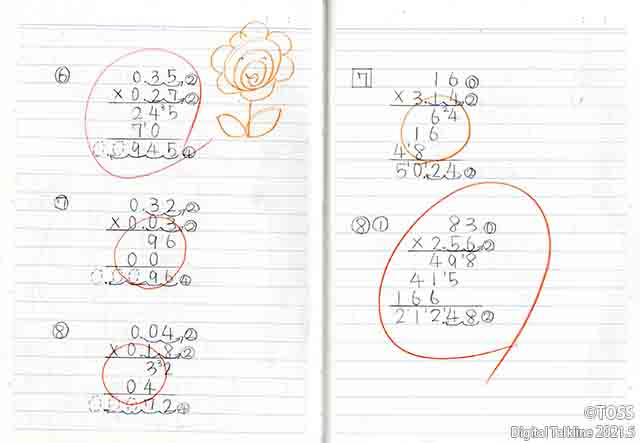 ⑥ 0.35 ②
× 0.27 ②
245
70
0.0945 ④
⑦ 0.32 ②
× 0.03 ②
96
00
0.0096 ④
⑧ 0.04 ②
× 0.18 ②
32
04
0.0072 ④
7 16 ⓪
× 3.14 ②
64
16
48
50.24 ②
⑧ ① 83 ⓪
× 2.56 ②
498
415
166
212.48 ②
©TOSS
Digital Talkline 2021.5